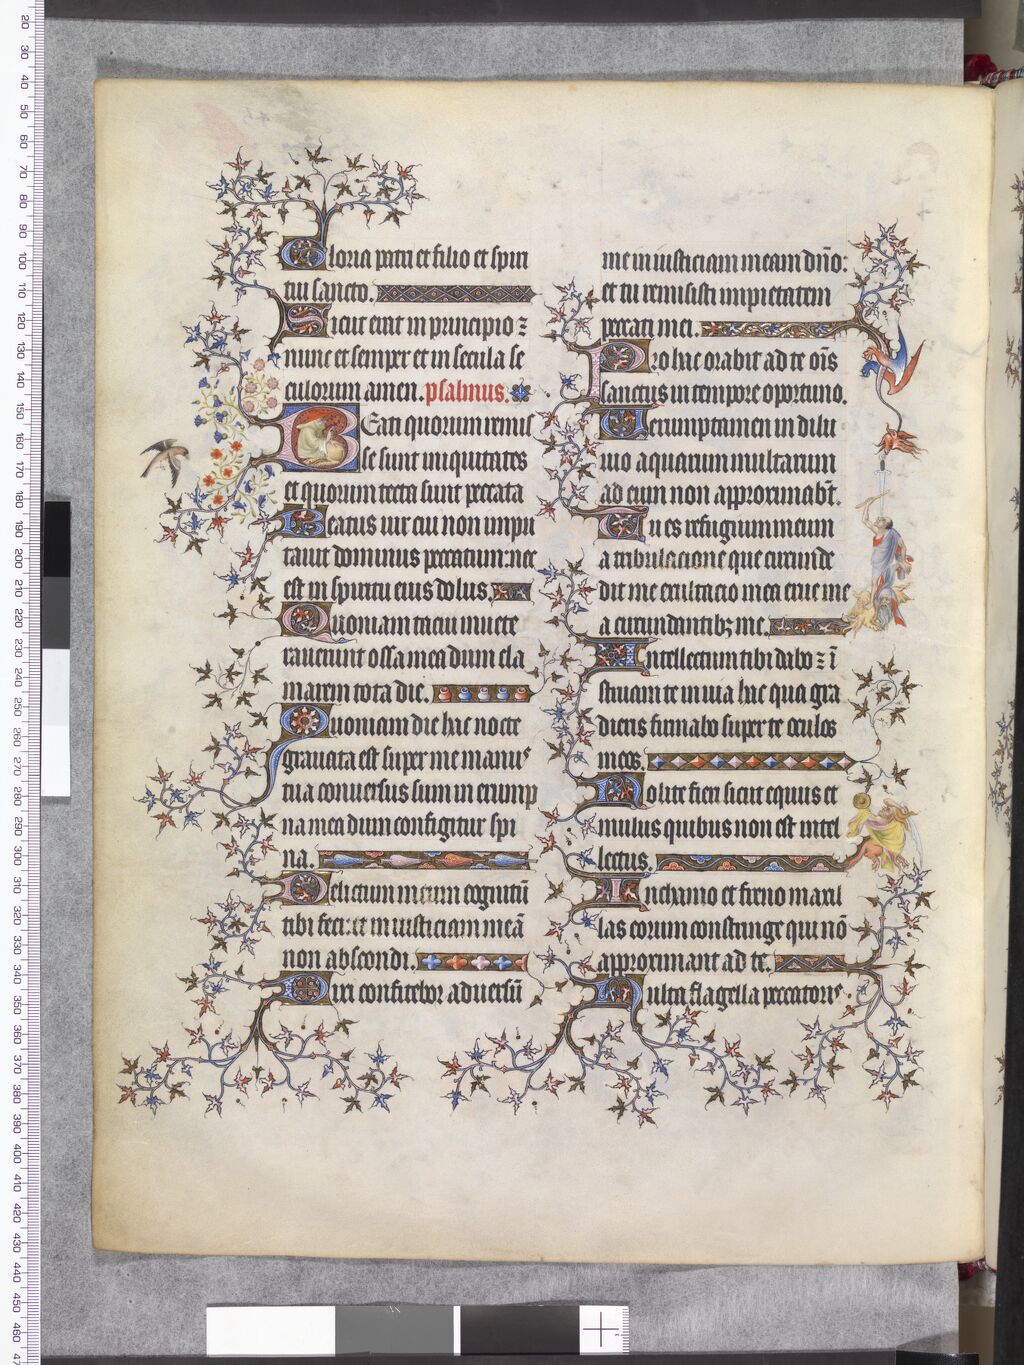 Gloria patri et filio et spiri
tui sancto.
Sicut erat in principio ⁊
nunc et semper et in secula se
culorum amen. psalmus.
Beati quorum remis
se sunt iniquitates
et quorum tecta sunt peccata
Beatus vir cui non impu
tavit dominus peccatum: nec
est in spiritu eius dolus.
Quoniam tacui invete
raverunt ossa mea dum cla
marem tota die.
Quoniam die hac nocte
gravata est super me manus
tua conversus sum in erump
na mea dum configitur spi
na.
Delictum meum cognitū
tibi feci: et iniusticiam meā
non abscondi.
Dixi confitebor adversū
me iniusticiam meam dn̄o:
et tu remisisti impietatem
peccati mei.
Pro hac orabit ad te ois̄
sanctus in tempore oportuno.
Verumptamen in dilu
uio aquarum multarum
ad eum non approximabt̄.
Tu es refugium meum
a tribulacione que circumde
dit me exultacio mea erue me
a circundantibȝ me.
Intellectum tibi dabo ⁊ ī
struam te in via hac qua gra
dieris firmabo super te oculos
meos.
Nolite fieri sicut equus et
mulus quibus non est intel
lectus.
In chamo et freno maxil
las eorum constringe qui nō
approximant ad te.
Multa flagella peccatoris
10
20
30
40
50
60
70
80
90
100
110
120
130
140
150
160
170
180
190
200
210
220
230
240
250
260
270
280
290
300
310
320
330
340
350
360
370
380
390
400
410
420
430
440
450
460